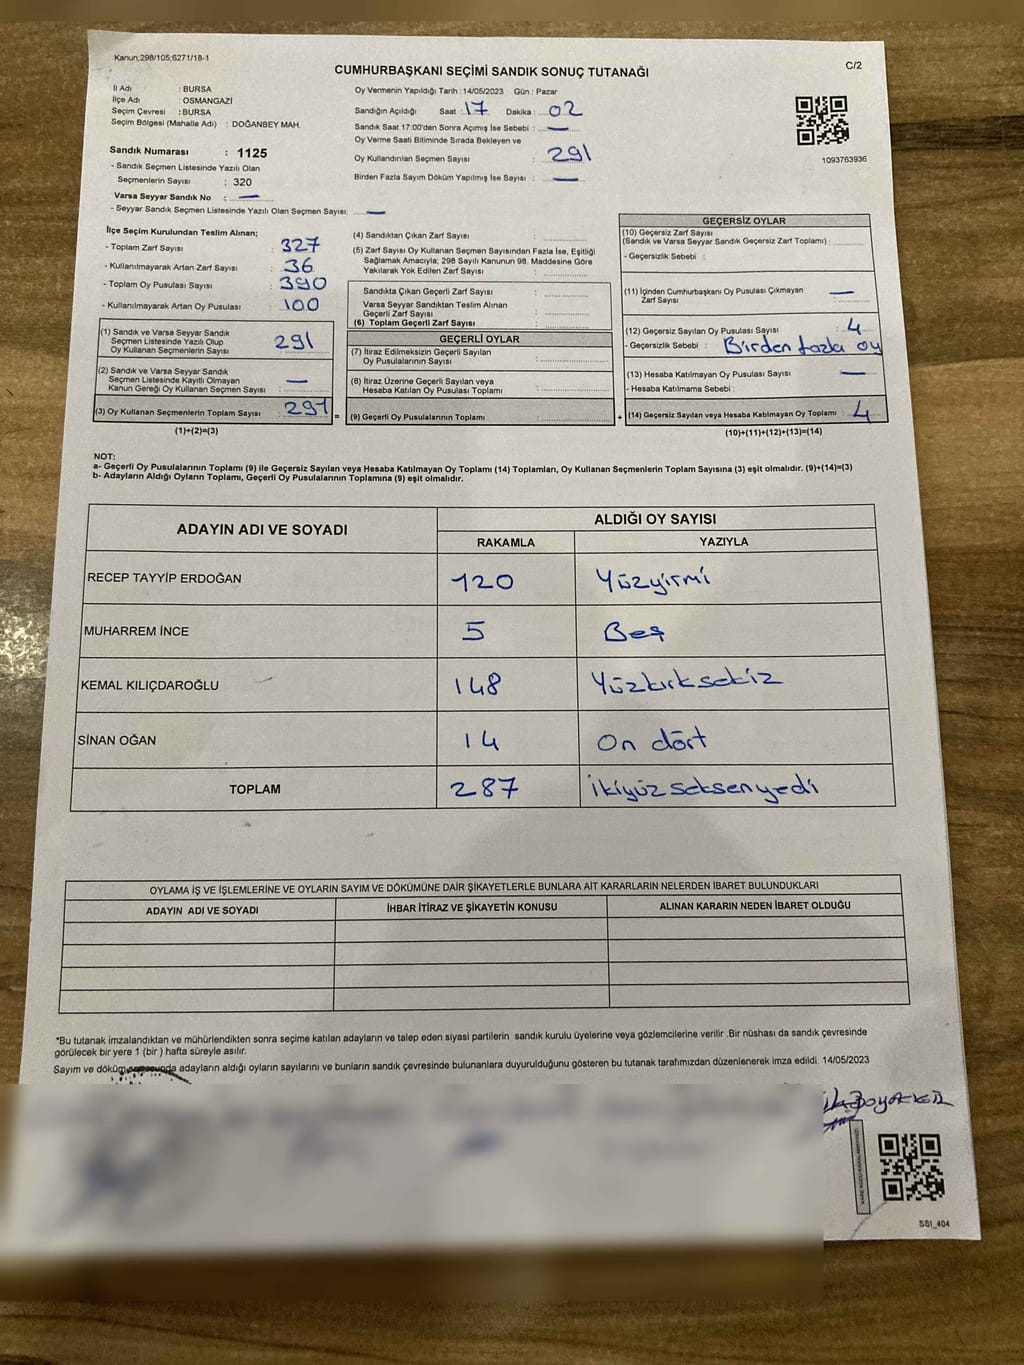 Kanun:298/105;6271/18-1
C/2
CUMHURBAŞKANI SEÇİMİ SANDIK SONUÇ TUTANAĞI
İl Adı : BURSA
İlçe Adı : OSMANGAZİ
Seçim Çevresi : BURSA
Seçim Bölgesi (Mahalle Adı) : DOĞANBEY MAH.
Sandık Numarası : 1125
- Sandık Seçmen Listesinde Yazılı Olan
Seçmenlerin Sayısı : 320
Varsa Seyyar Sandık No : —
- Seyyar Sandık Seçmen Listesinde Yazılı Olan Seçmen Sayısı: —
Oy Vermenin Yapıldığı Tarih : 14/05/2023 Gün : Pazar
Sandığın Açıldığı Saat : 17 Dakika : 02
Sandık Saat 17:00'den Sonra Açımış İse Sebebi : —
Oy Verme Saati Bitiminde Sırada Bekleyen ve
Oy Kullandırılan Seçmen Sayısı : 291
Birden Fazla Sayım Döküm Yapılmış İse Sayısı : —
1093763936
İlçe Seçim Kurulundan Teslim Alınan;
- Toplam Zarf Sayısı : 327
- Kullanılmayarak Artan Zarf Sayısı : 36
- Toplam Oy Pusulası Sayısı : 390
- Kullanılmayarak Artan Oy Pusulası : 100
(1) Sandık ve Varsa Seyyar Sandık
Seçmen Listesinde Yazılı Olup
Oy Kullanan Seçmenlerin Sayısı : 291
(2) Sandık ve Varsa Seyyar Sandık
Seçmen Listesinde Kayıtlı Olmayan
Kanun Gereği Oy Kullanan Seçmen Sayısı : —
(3) Oy Kullanan Seçmenlerin Toplam Sayısı : 291 =
(1)+(2)=(3)
(4) Sandıktan Çıkan Zarf Sayısı :
(5) Zarf Sayısı Oy Kullanan Seçmen Sayısından Fazla İse, Eşitliği
Sağlamak Amacıyla; 298 Sayılı Kanunun 98. Maddesine Göre
Yakılarak Yok Edilen Zarf Sayısı :
Sandıkta Çıkan Geçerli Zarf Sayısı :
Varsa Seyyar Sandıktan Teslim Alınan
Geçerli Zarf Sayısı :
(6) Toplam Geçerli Zarf Sayısı :
GEÇERLİ OYLAR
(7) İtiraz Edilmeksizin Geçerli Sayılan
Oy Pusulalarının Sayısı :
(8) İtiraz Üzerine Geçerli Sayılan veya
Hesaba Katılan Oy Pusulası Toplamı :
(9) Geçerli Oy Pusulalarının Toplamı : +
GEÇERSİZ OYLAR
(10) Geçersiz Zarf Sayısı
(Sandık ve Varsa Seyyar Sandık Geçersiz Zarf Toplamı) :
- Geçersizlik Sebebi :
(11) İçinden Cumhurbaşkanı Oy Pusulası Çıkmayan
Zarf Sayısı : —
(12) Geçersiz Sayılan Oy Pusulası Sayısı : 4
- Geçersizlik Sebebi : Birden fazla oy
(13) Hesaba Katılmayan Oy Pusulası Sayısı : —
- Hesaba Katılmama Sebebi :
(14) Geçersiz Sayılan veya Hesaba Katılmayan Oy Toplamı : 4
(10)+(11)+(12)+(13)=(14)
NOT:
a- Geçerli Oy Pusulalarının Toplamı (9) ile Geçersiz Sayılan veya Hesaba Katılmayan Oy Toplamı (14) Toplamları, Oy Kullanan Seçmenlerin Toplam Sayısına (3) eşit olmalıdır. (9)+(14)=(3)
b- Adayların Aldığı Oyların Toplamı, Geçerli Oy Pusulalarının Toplamına (9) eşit olmalıdır.
ADAYIN ADI VE SOYADI ALDIĞI OY SAYISI
RAKAMLA YAZIYLA
RECEP TAYYİP ERDOĞAN 120 Yüzyirmi
MUHARREM İNCE 5 Beş
KEMAL KILIÇDAROĞLU 148 Yüzkırksekiz
SİNAN OĞAN 14 On dört
TOPLAM 287 İkiyüz seksen yedi
OYLAMA İŞ VE İŞLEMLERİNE VE OYLARIN SAYIM VE DÖKÜMÜNE DAİR ŞİKAYETLERLE BUNLARA AİT KARARLARIN NELERDEN İBARET BULUNDUKLARI
ADAYIN ADI VE SOYADI İHBAR İTİRAZ VE ŞİKAYETİN KONUSU ALINAN KARARIN NEDEN İBARET OLDUĞU
*Bu tutanak imzalandıktan ve mühürlendikten sonra seçime katılan adayların ve talep eden siyasi partilerin sandık kurulu üyelerine veya gözlemcilerine verilir .Bir nüshası da sandık çevresinde
görülecek bir yere 1 (bir ) hafta süreyle asılır.
Sayım ve döküm sonucunda adayların aldığı oyların sayılarını ve bunların sandık çevresinde bulunanlara duyurulduğunu gösteren bu tutanak tarafımızdan düzenlenerek imza edildi. 14/05/2023
SSI_404